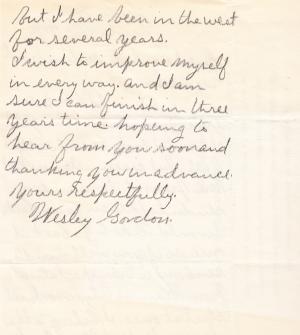 but I have been in the west
for several years.
I wish to improve myself
in every way. and I am
sure I can finish in three
years time. hopeing to
hear from you soon and
thanking you in advance.
yours respectfully.
Wesley Gordon.